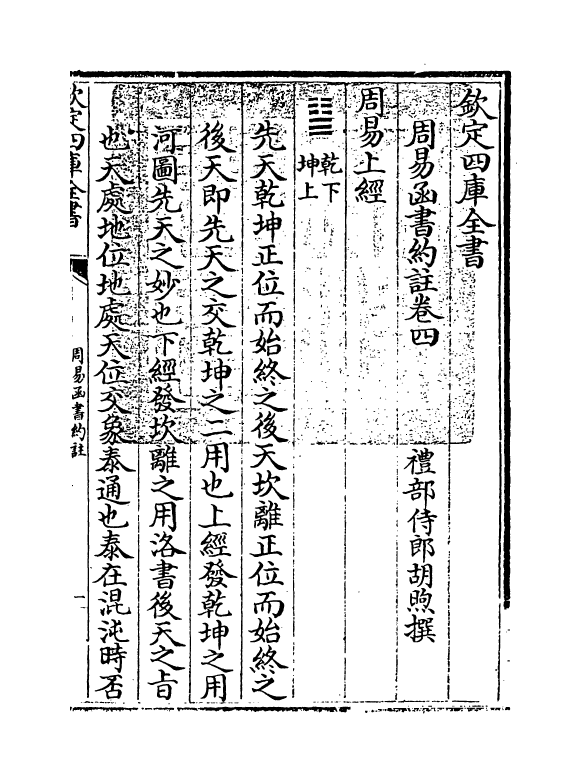 欽定四庫全書
周易函書約註卷四
禮部侍郎胡煦撰
周易上經
䷊
乾下
坤上
先天乾坤正位而始終之後天坎離正位而始終之
後天即先天之交乾坤之二用也上經發乾坤之用
河圖先天之妙也下經發坎離之用洛書後天之旨
也天處地位地處天位交象泰通也泰在混沌時否
欽定四庫全書
周易函書約註
一